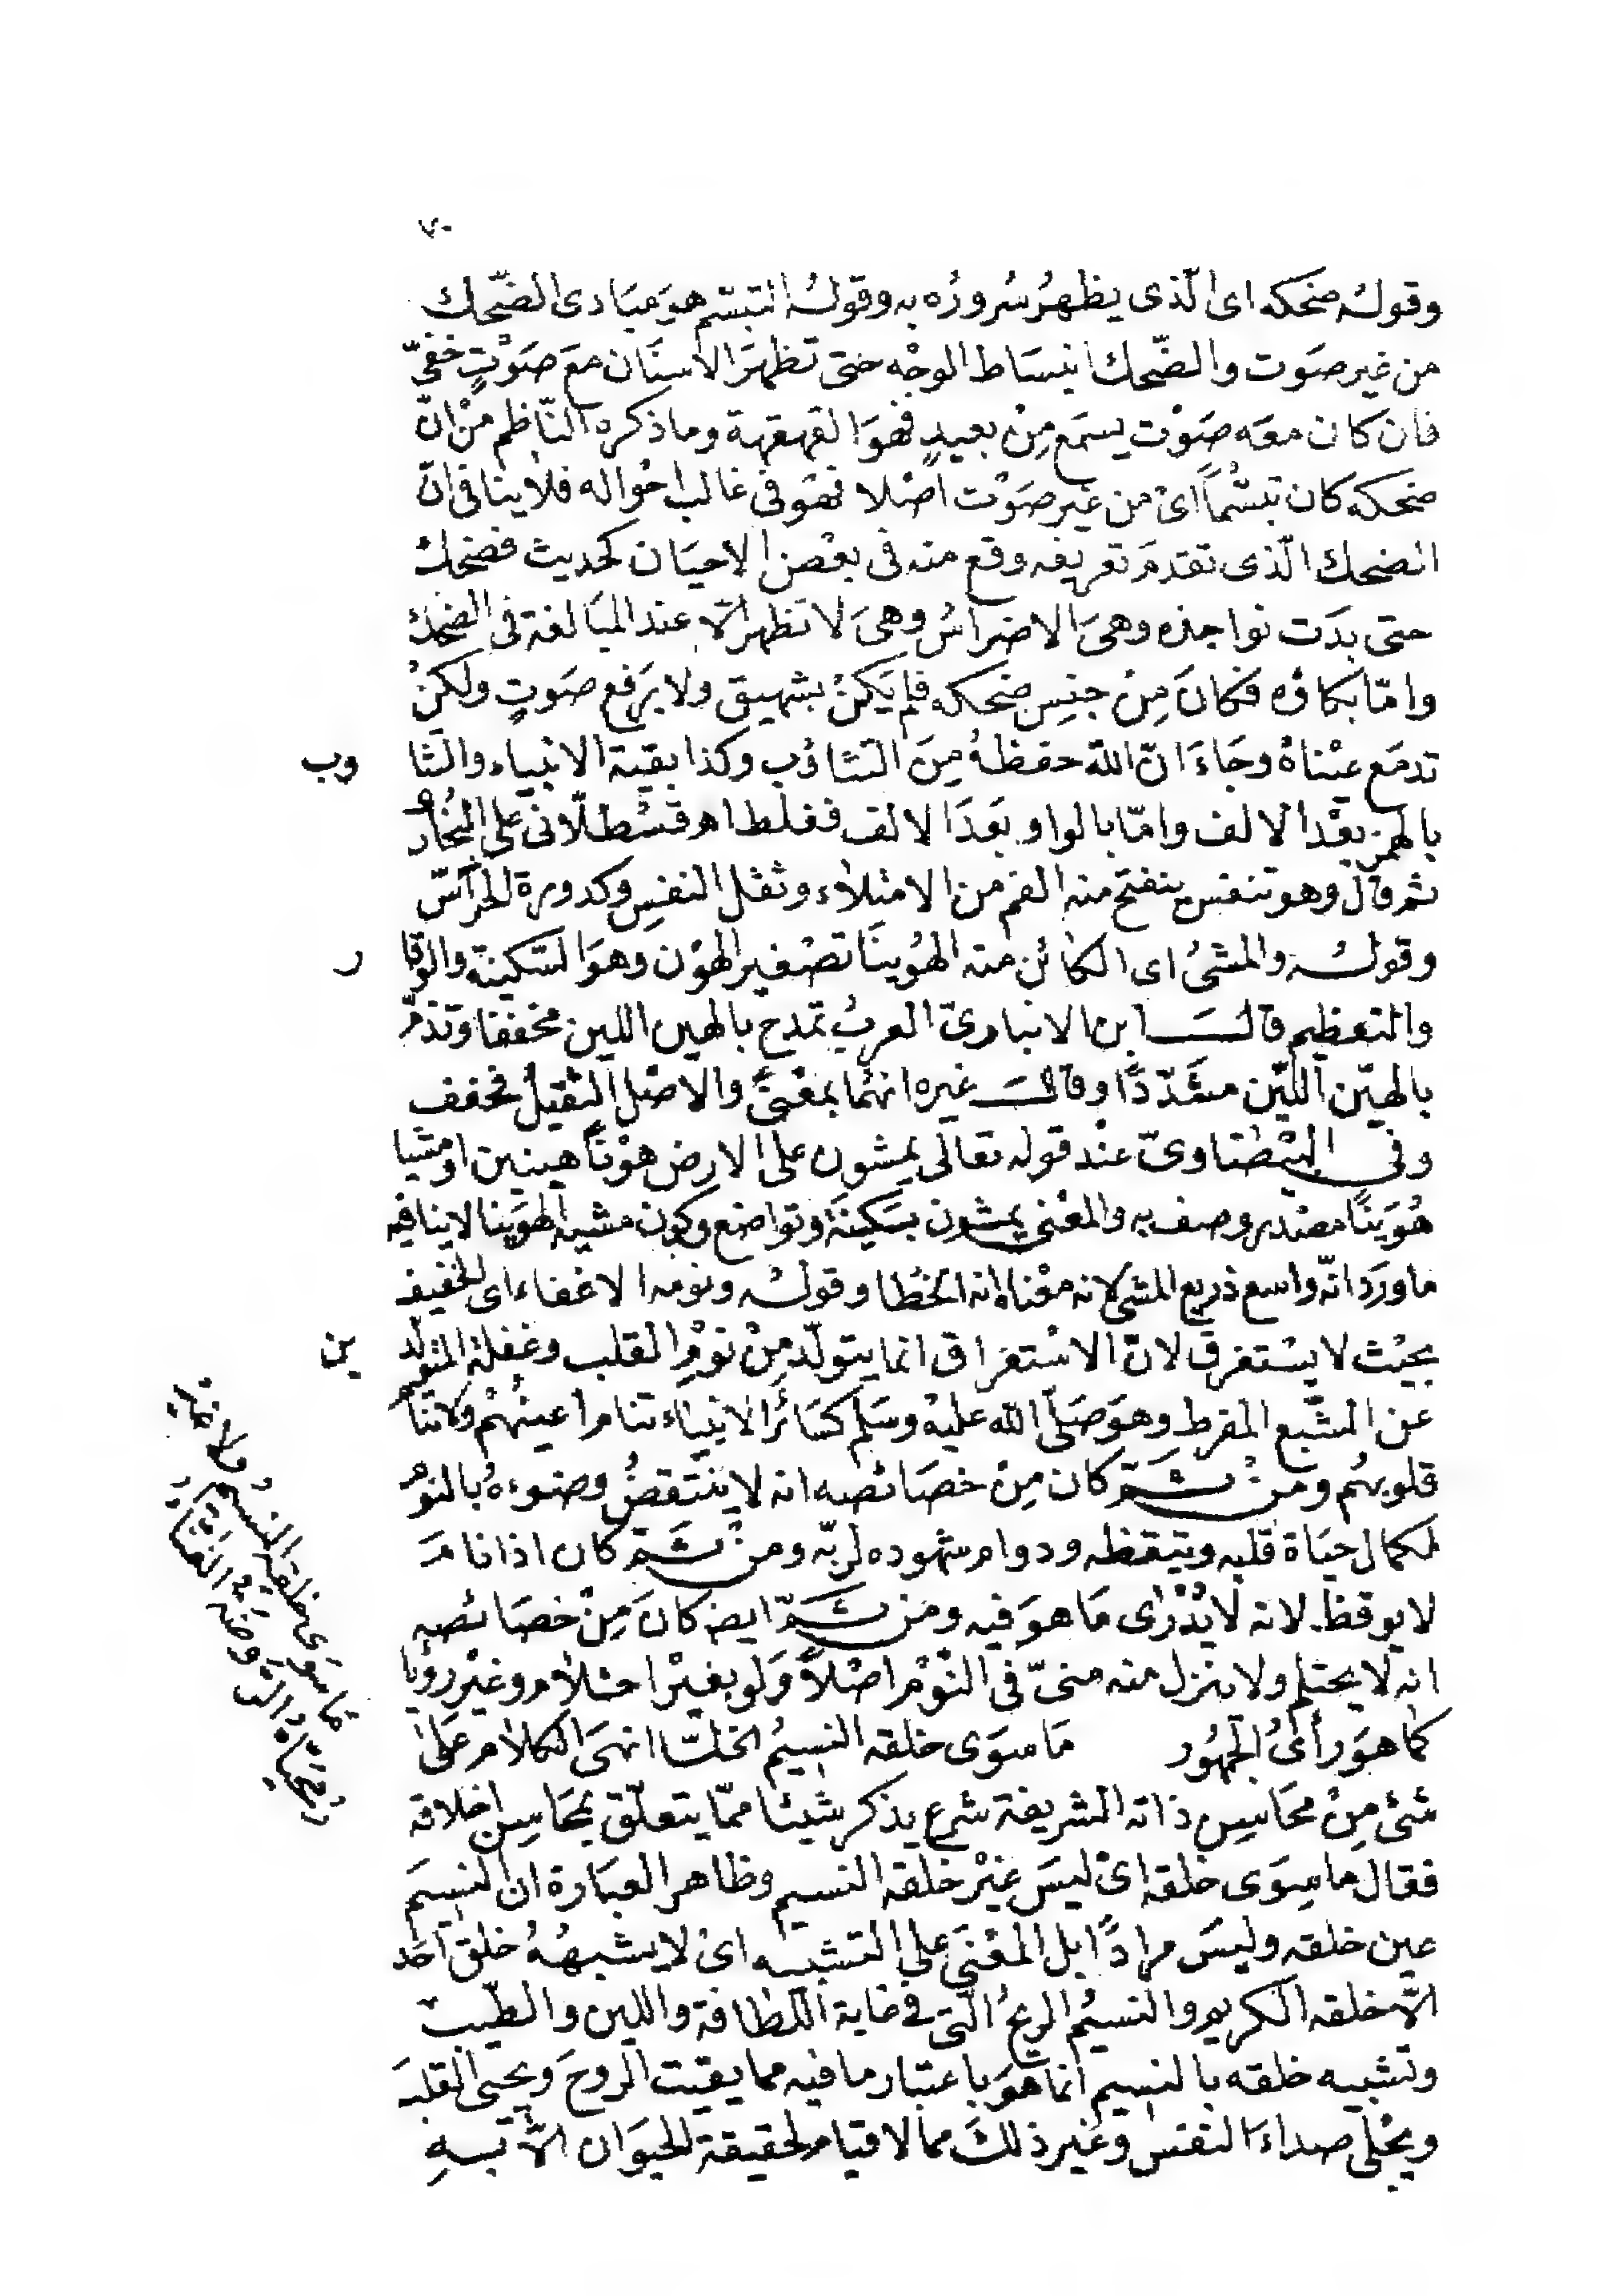 ٧٠
وقوله ضحكه اى الّذى يظهرُ سُرورُه به وقولهُ التبسّم هوَ مبَادى الضّحك
من غير صَوت والضّحك انبسَاط الوجْه حتى تظهرَ الاسنَان معَ صَوْتٍ خفىّ
فان كان معَه صَوْت يسمَع مِنْ بعيدٍ فهوَ القهقهة وما ذكره النّاظم منْ انّ
ضحكه كان تبسُّماً اىْ من غير صَوْت اصْلا فهوَ فى غالب احْواله فلا ينافى انّ
الضحك الّذى تقدمَ تعريفه وقع منه فى بعْض الاحيَان كحديث فضحك
حتى بدَت نواجذه وهىَ الاضراسُ وهىَ لا تظهر الّا عند المبَالغة فى الضحك
وامّا بكاؤه فكانَ مِنْ جنِس ضحكه فلم يَكنْ بشهيق ولا برَفع صَوتٍ ولكنْ
تدمَع عيْناهُ وجَاءَ انّ اللّه حفظهُ مِنَ التثاؤب وكذا بقيَة الانبياء والتثا وب
بالهمز بعْد الالف وامّا بالواو بعَدَ الالف فغلط اهـ قسْطلّانى على البُخارى
ثم قال وهو تنفس ينفتح منه الفم من الامتلاء وثقل النفِس وكدورة الحَواسّ
وقولهُ والمشىُ اى الكائن منه الهُوينَا تصْغير الهوْن وهوَ السّكينة والوقا ر
والتعظيم قالَ ابن الانبارىّ العربُ تمدح بالهين اللين مخففا وتذمّ
بالهيّن اللّيّن مشَدّدًا وقالَ غيره انهُمَا بمعْنىً والاصْل التثقيلُ فخفف
وفى البيْضَاوىّ عنْد قوله تعَالى يمشون على الارض هوْناً هينين او مشيا
هُوَينًا مصْدر وصف به والمعْنى يمشون بسَكينَة وتواضع وكون مشيه الهوَينا لا ينافيه
ما ورَد انّه واسع ذريع المشى لانه معْناه انه الخُطا وقولهُ ونومه الاغفاء اى الخفيف
بحيْث لا يسْتغرق لانّ الاسْتغراق انما يتولّد مِنْ نوْم القلب وغفلة المتولد ين
عن الشّبع المفرط وهوَ صَلّى اللّه عليْه وسَلم كسَائر الانبيَاء تنام اعينُهُمْ ولا تنام
قلوبهُم ومنْ ثمّ كان مِنْ خصَائصه انه لا ينتقضُ وضوءهُ بالنوْم
لكمال حيَاة قلبه وتيقظه ودوام شهوده لربّه ومنْ ثمّ كان اذا نامَ
لا يوقظ لانه لا يُدْرَى مَا هوَ فيه ومن ثمّ ايضا كانَ مِنْ خصَائصِه
انه لا يحتلم ولا ينزل منه منىّ فى النّوْم اصْلاً وَلو بغيْر احتلام وغيْر رؤيا
كما هوَ رأىُ الجمهُور مَا سوَى خلقه النسيمُ الخ لمّا انهىَ الكلام عَلى
شئ مِنْ محَاسِن ذاته الشريفة شرع يذكر شيئا ممّا يتعلّق بمحَاسِن اخلاقه
فقال ما سِوَى خلقه اىْ ليسَ غيْر خلقه النسيم وظاهر العبَارة ان النسيَم
عين خلقه وليسَ مرادًا بل المعْنَى على التشبيه اىْ لا يشبههُ خلق احَد
الّا خلقه الكريم والنسيُم الريحُ التى فى غاية اللّطافة واللين والطّيب
وتشبيه خلقه بالنسيم انما هوَ باعتبار ما فيه مما يقيت الروحَ ويحيى القلبَ
ويجْلى صداءَ النفس وغيْر ذلكَ مما لا قيام لحقيقة الحيوَان الّا بهِ
مَا سوَى خلقه النسيمُ ولا غير
مُحيَّاه الرّوضة الغنّاء